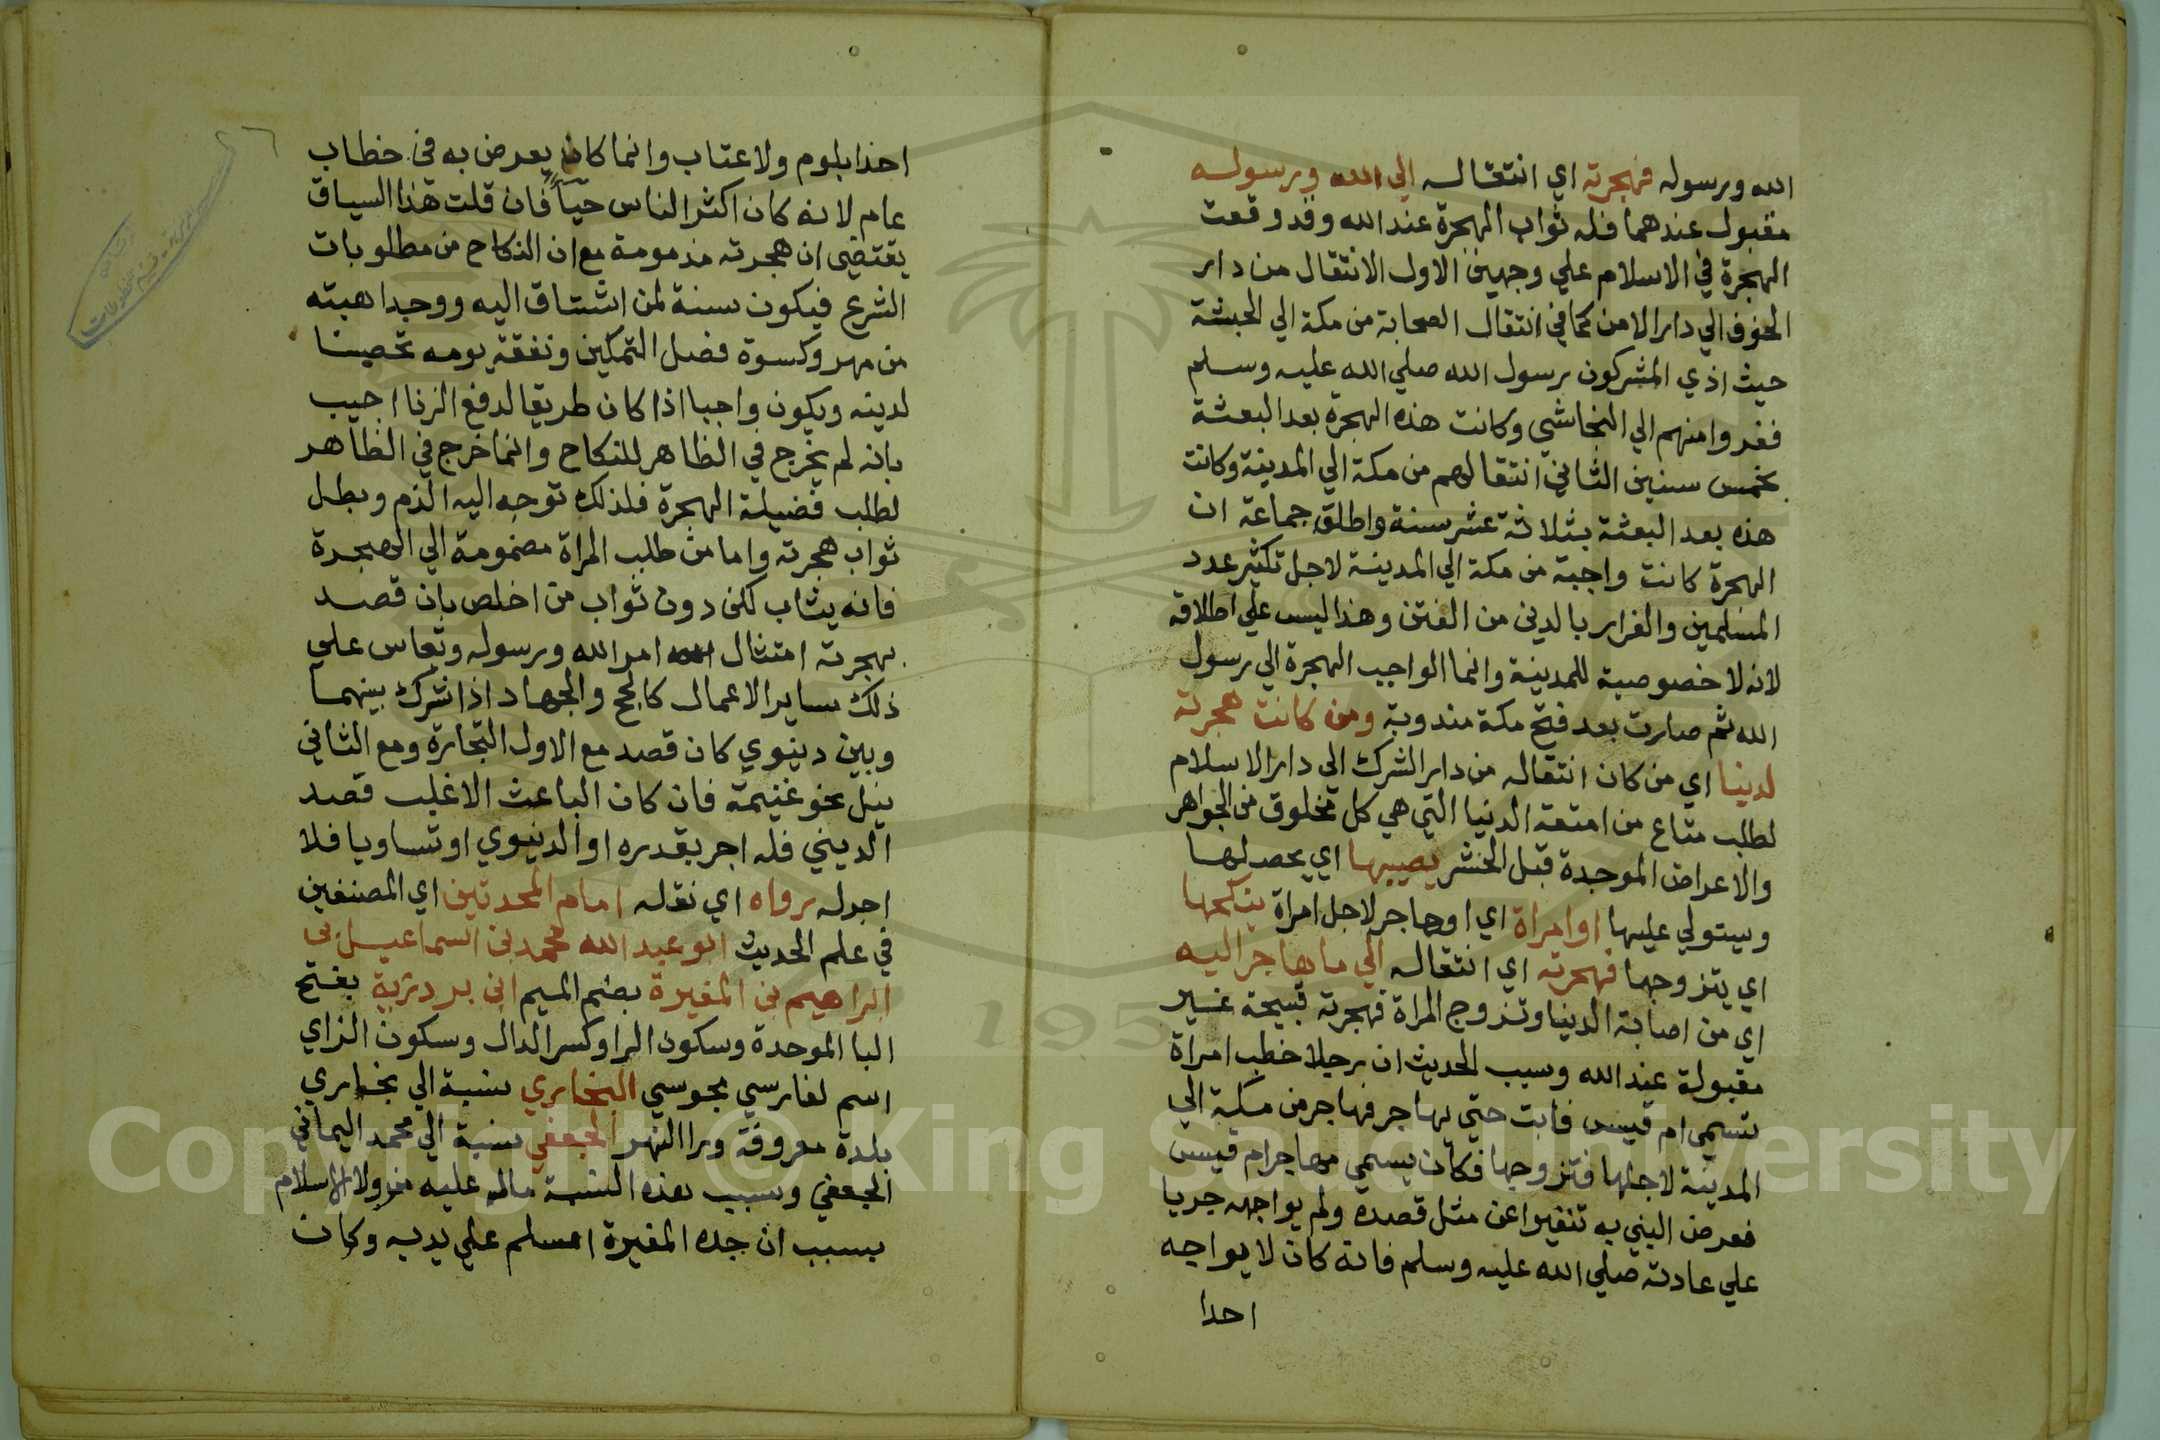 الله ورسوله فهجرته اي انتقاله الي الله ورسوله
مقبول عندهما فله ثواب الهجرة عند الله وقد وقعت
الهجرة في الاسلام علي وجهين الاول الانتقال من دار
الخوف الي دار الامن كما في انتقال الصحابة من مكة الي الحبشة
حيث اذي المشركون رسول الله صلي الله عليه وسلم
ففروا منهم الي النجاشي وكانت هذه الهجرة بعد البعثة
بخمس سنين الثاني انتقالهم من مكة الي المدينة وكانت
هذه بعد البعثة بثلاثة عشر سنة واطلق جماعة ان
الهجرة كانت واجبة من مكة الي المدينة لاجل تكثير عدد
المسلمين والفرار بالدين من الفتن وهذا ليس علي اطلاقه
لانه لا خصوصية للمدينة وانما الواجب الهجرة الي رسول
الله ثم صارت بعد فتح مكة مندوبة ومن كانت هجرته
لدنيا اي من كان انتقاله من دار الشرك الي دار الاسلام
لطلب متاع من امتعة الدنيا التي هي كل مخلوق من الجواهر
والاعراض الموجدة قبل الحشر يصيبها اي يحصلها
ويستولي عليها او امراة اي او هاجر لاجل امراة ينكحها
اي يتزوجها فهجرته اي انتقاله الي ما هاجر اليه
اي من اصابة الدنيا وتزوج المراة فهجرته قبيحة غير
مقبولة عند الله وسبب الحديث ان رجلا خطب امراة
تسمي ام قيس فابت حتي يهاجر فهاجر من مكة الي
المدينة لاجلها فتزوجها فكان يسمي مهاجر ام قيس
فعرض النبي به تنفيرا عن مثل قصده ولم يواجهه جريا
علي عادته صلي الله عليه وسلم فانه كان لا يواجه
احدا
احدا بلوم ولا عتاب وانما كان يعرض به في خطاب
عام لانه كان اكثر الناس حياً فان قلت هذا السياق
يقتضي ان هجرته مذمومة مع ان النكاح من مطلوبات
الشرع فيكون سنة لمن اشتاق اليه ووجد اهبته
من مهر وكسوة فصل التمكين ونفقة يومه تحصينا
لدينه ويكون واجبا اذا كان طريقا لدفع الزنا اجيب
بانه لم يخرج في الظاهر للنكاح وانما خرج في الظاهر
لطلب فضيلة الهجرة فلذلك توجه اليه الذم وبطل
ثواب هجرته واما من طلب المراة مضمومة الي الهجرة
فانه يثاب لكن دون ثواب من اخلص بان قصد
بهجرته امتثال امر الله ورسوله وتقاس علي
ذلك ساير الاعمال كالحج والجهاد اذا شرك بينهما
وبين دنيوي كان قصد مع الاول التجارة ومع الثاني
نيل نحو غنيمة فان كان الباعث الاغلب قصد
الديني فله اجر بقدره او الدنيوي او تساويا فلا
اجر له رواه اي نقله امام المحدثين اي المصنفين
في علم الحديث ابو عبد الله محمد بن اسماعيل بن
ابراهيم بن المغيرة بضم الميم ابن بردزبة بفتح
البا الموحدة وسكون الرا وكسر الدال وسكون الزاي
اسم لفارسي مجوسي البخاري نسبة الي بخاري
بلدة معروفة ورا النهر الجعفي نسبة الي محمد اليماني
الجعفي وسبب هذه النسبة ماله عليه من ولا الاسلام
بسبب ان جده المغيرة اسلم علي يديه وكان
Copyright © King Saud University
195